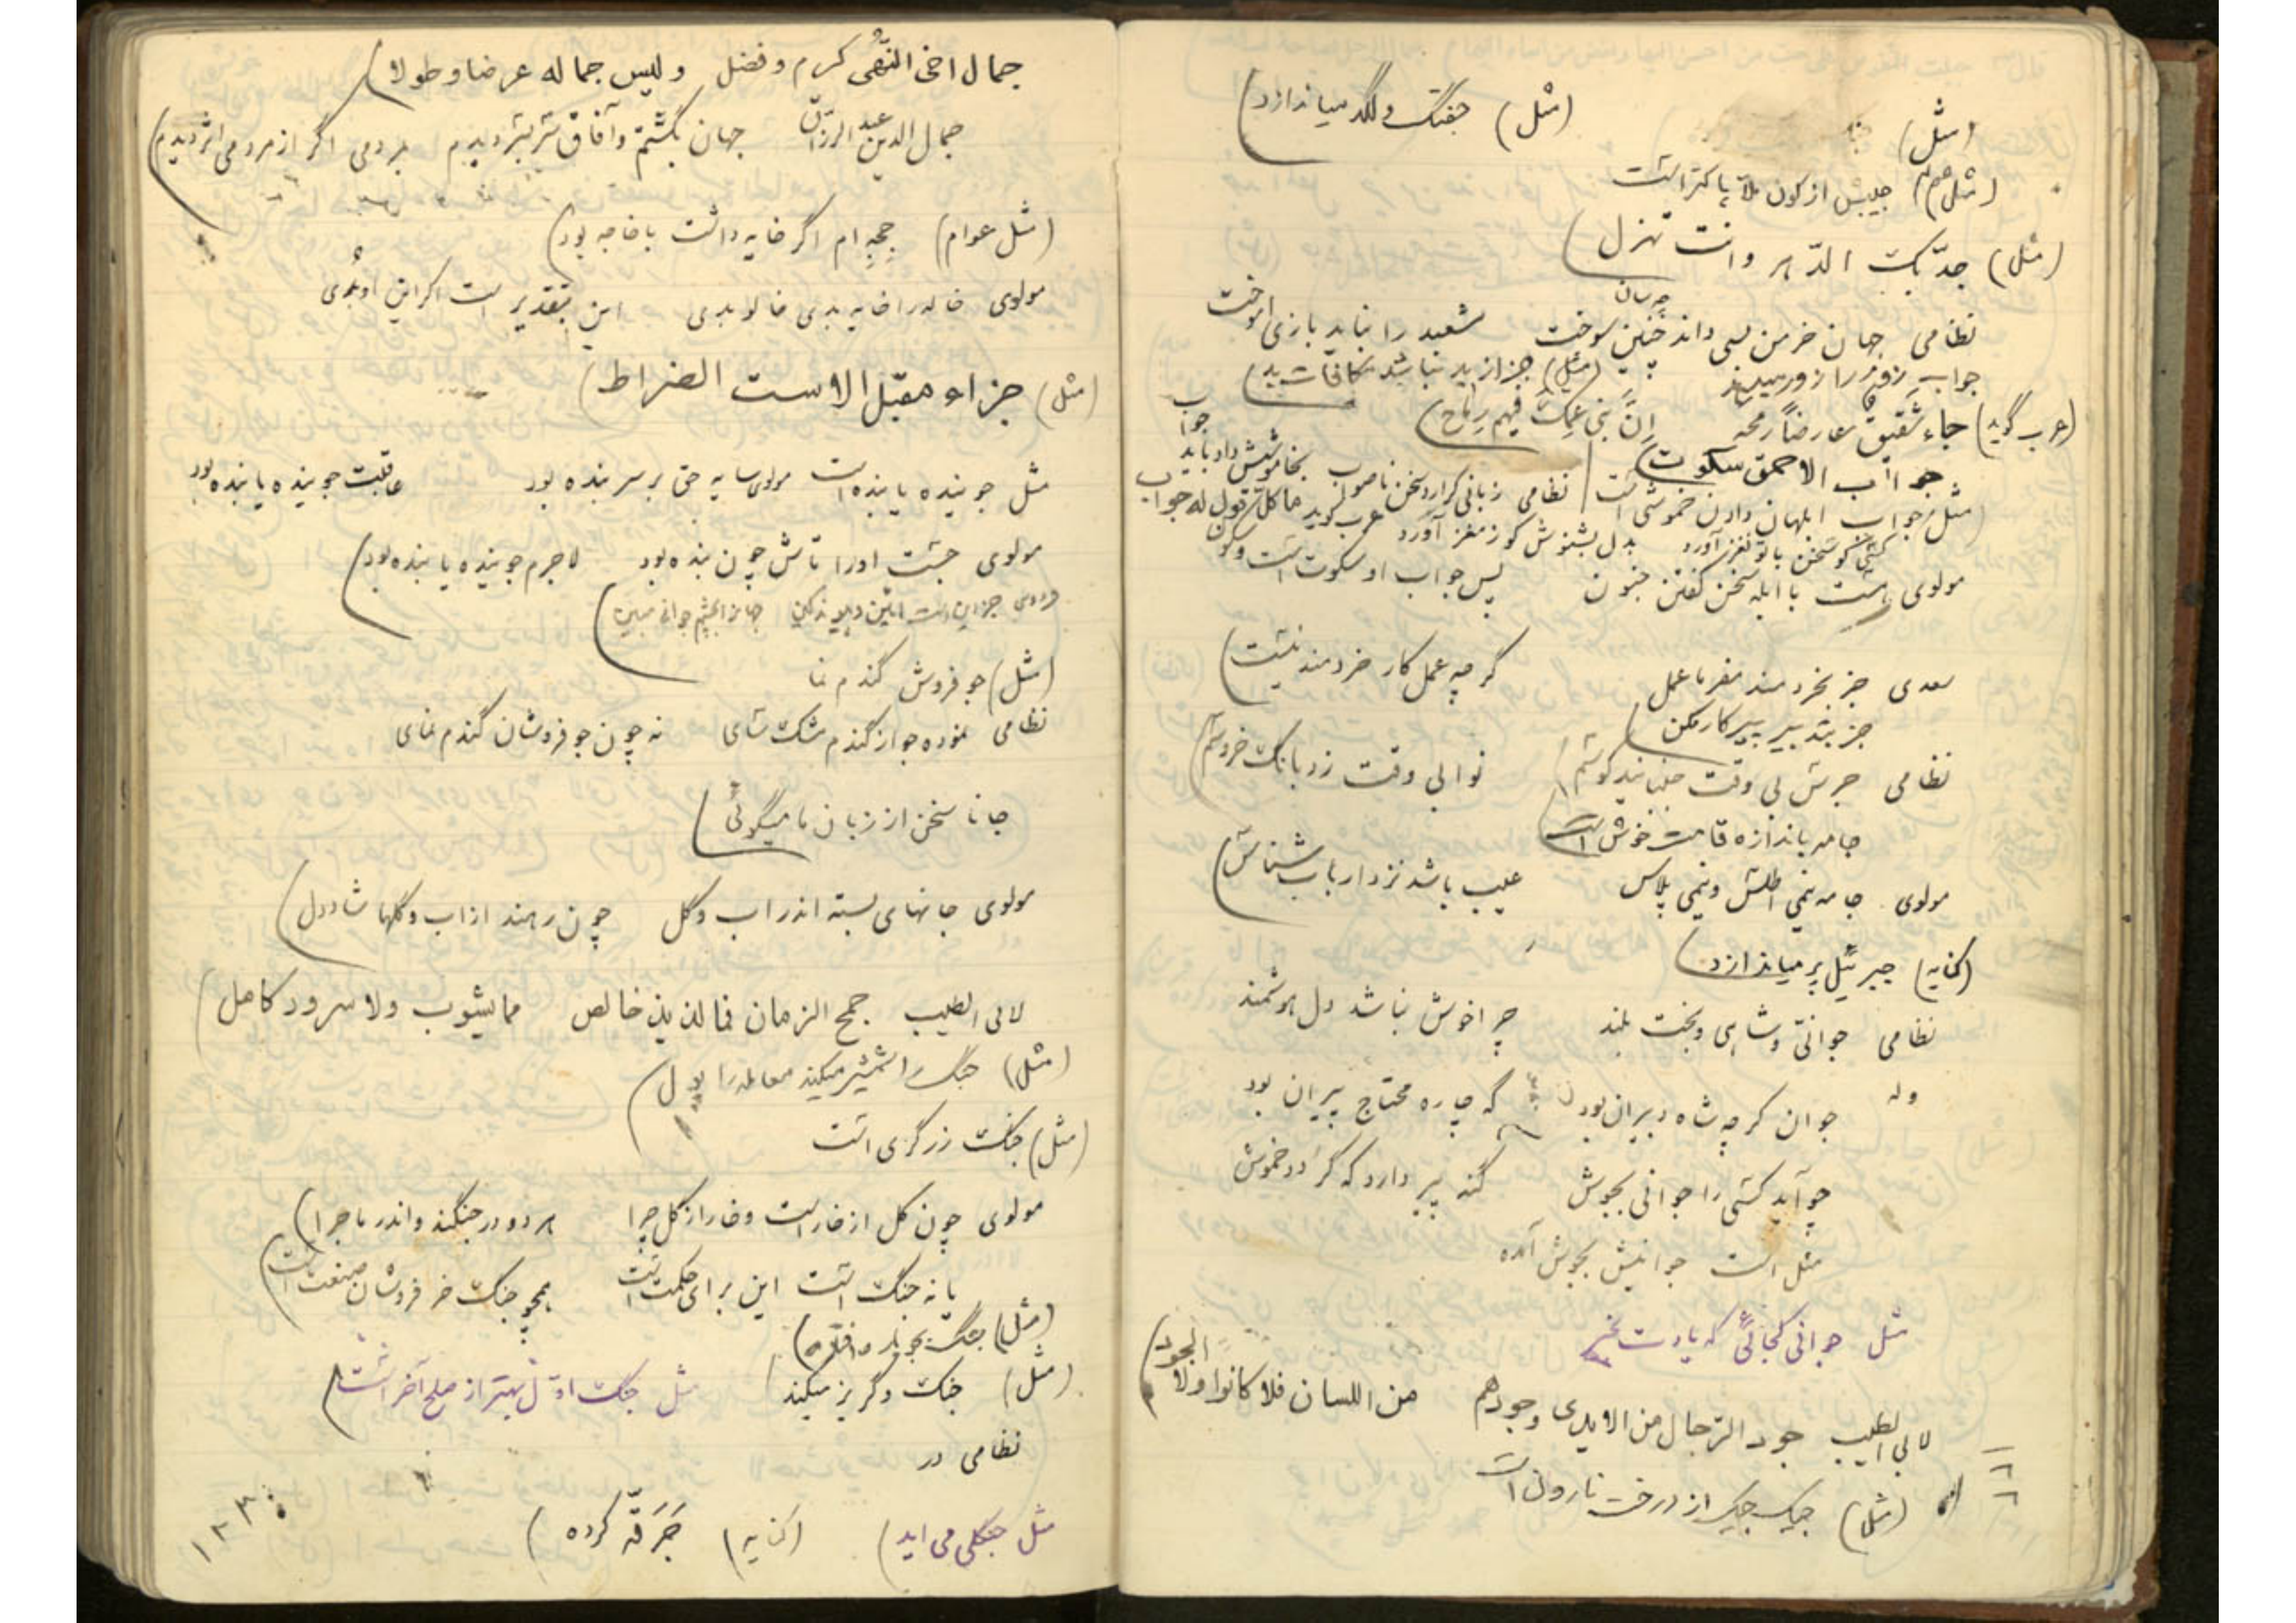 (مثل) جفتک ولگد میاندازد)
(مثل)
(مثل عوام) جیبش از کون ملا پاکتر است
(مثل) جدّ بک الدّهر وانت تهزل)
نظامی جهان خرمن بسی داند چنین سوخت شعبد را نباید بازی اموخت
چه سان
جواب زور را زور میدهد (مثل) جز از بد نباشد مکافات بد)
(عرب گوید) جاء شقیق عارضاً رمحه اِنّ بنی عمّک فیهم رماح)
جواب الاحمق سکوت)
(مثل) جواب ابلهان دادن خموشی است نظامی زبانی کرارد سخن ناصواب بخاموشیش داد باید جواب
کسی کو سخن با تو نغز آورد بدل بشنوش کو ز مغز آورد عرب گوید ما کل قول له جواب
مولوی هست با ابله سخن گفتن جنون پس جواب او سکوت است و سکون
سعدی جز بخردمند مفرما عمل گرچه عمل کار خردمند نیست)
جز بتدبیر پیر کار مکن)
نظامی جرس بی وقت جنبانید کوشم) نوا بی وقت زد بانک خروسم)
جامه باندازه قامت خوش است)
مولوی جامه نیمی اطلس و نیمی پلاس عیب باشد نزد ارباب شناس)
(کنایه) جبرئیل پر میاندازد)
نظامی جوانی و شاهی و بخت بلند چرا خوش نباشد دل هوشمند
وله جوان کرچه شاه دبیران بود که چاره محتاج پیران بود
چو آید کسی را جوانی بجوش گنه پیر دارد که گردد خموش
مثل است جوانیش بجوش آمده
مثل جوانی کجائی که یادت بخیر
لابی الطیب جود الرّجال من الایدی وجودهم من اللسان فلا کانوا ولا الجود)
(مثل) جیک جیک از درخت نارون است
جمال اخی النّهی کرم و فضل ولیس جماله عرضا وطولا)
جمال الدین عبد الرزاق جهان بگشتم و آفاق سر بسر دیدم بمردمی اگر از مردمی اثر دیدم)
(مثل عوام) جیجه ام اگر خایه داشت باخاجه بود)
مولوی خاله را خایه بدی خالو بدی این بتقدیر است اکر این او بدی
(مثل) جزاء مقبّل الاست الضراط)
مثل جوینده یابنده است مولوی سایه حق بر سر بنده بود عاقبت جوینده یابنده بود
مولوی جست اورا تاش چون بنده بود لاجرم جوینده یابنده بود)
جهانرا بچشم جوانی مبین)
(مثل) جو فروش گندم نما
نظامی نموده جو از گندم مشک سای نه چون جو فروشان گندم نمای
جانا سخن از زبان ما میگوئی)
مولوی جانهای بسته اندر اب وگل چون رهند از اب وگلها شاد دل)
لابی الطیب جمح الزمان فما لذیذ خالص مما یشوب ولا سرور کامل)
(مثل) جنگ را شمشیر میکند معامله را پول)
(مثل) جنگ زرگری است
مولوی چون کل از خار است و خار از کل چرا هر دو در جنگند و اندر ماجرا)
یا نه جنگ است این برای حکمت است همچو جنگ خر فروشان صنعت است)
(مثل)
(مثل) جنگ و گریز میکند) مثل جنگ اوّل بهتر از صلح آخر است)
نظامی در
مثل جنگلی می اید) (کنایه) جَرَقّه کرده)